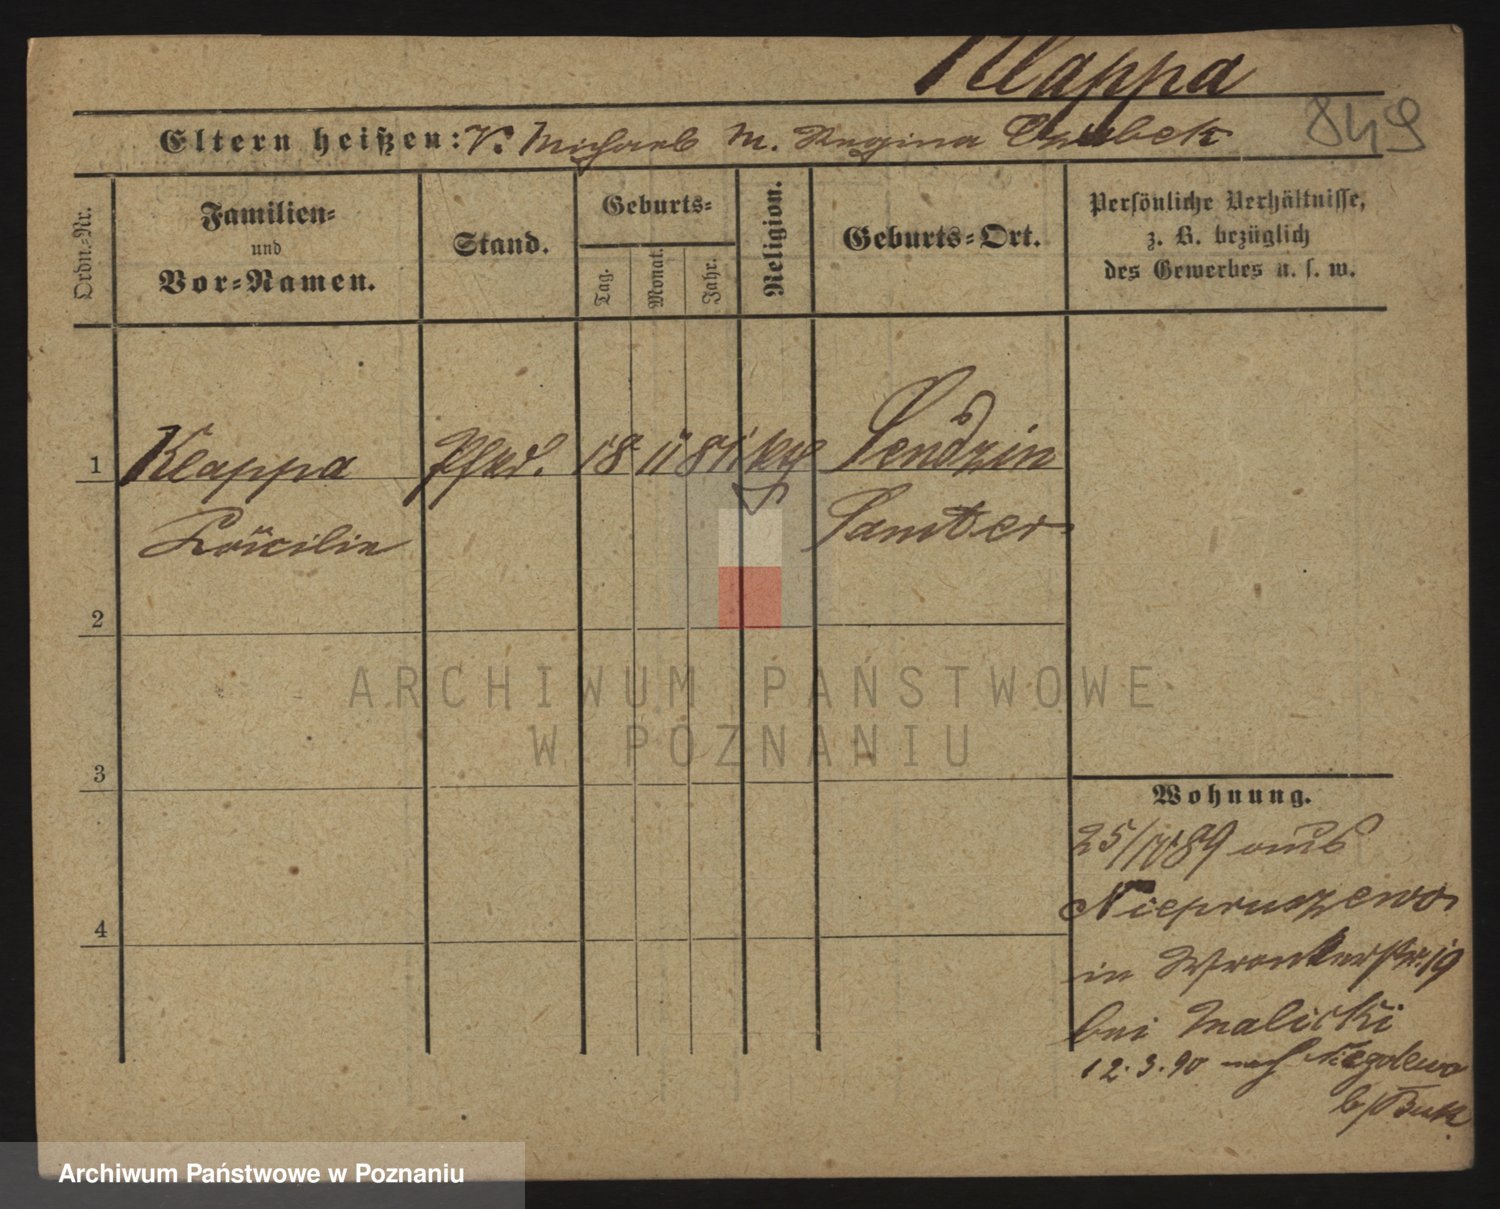 Klappa
849
Eltern heißen: V. Michael M. Regina Czubek
Ordn.-Nr.
Familien-
und
Vor-Namen.
Stand.
Geburts-
Tag.
Monat.
Jahr.
Religion.
Geburts-Ort.
Persönliche Verhältnisse,
z. B. bezüglich
des Gewerbes u. s. w.
1 Klappa 18 11 81 kth Sendzin
Cäcilie Samter
2
3
4
ARCHIWUM PAŃSTWOWE
W POZNANIU
Wohnung.
89 aus
Niepruszewo
in Wronkerstr. 19
bei Malicki
12.3.90 nach Niegolewo
b/Buk
Archiwum Państwowe w Poznaniu